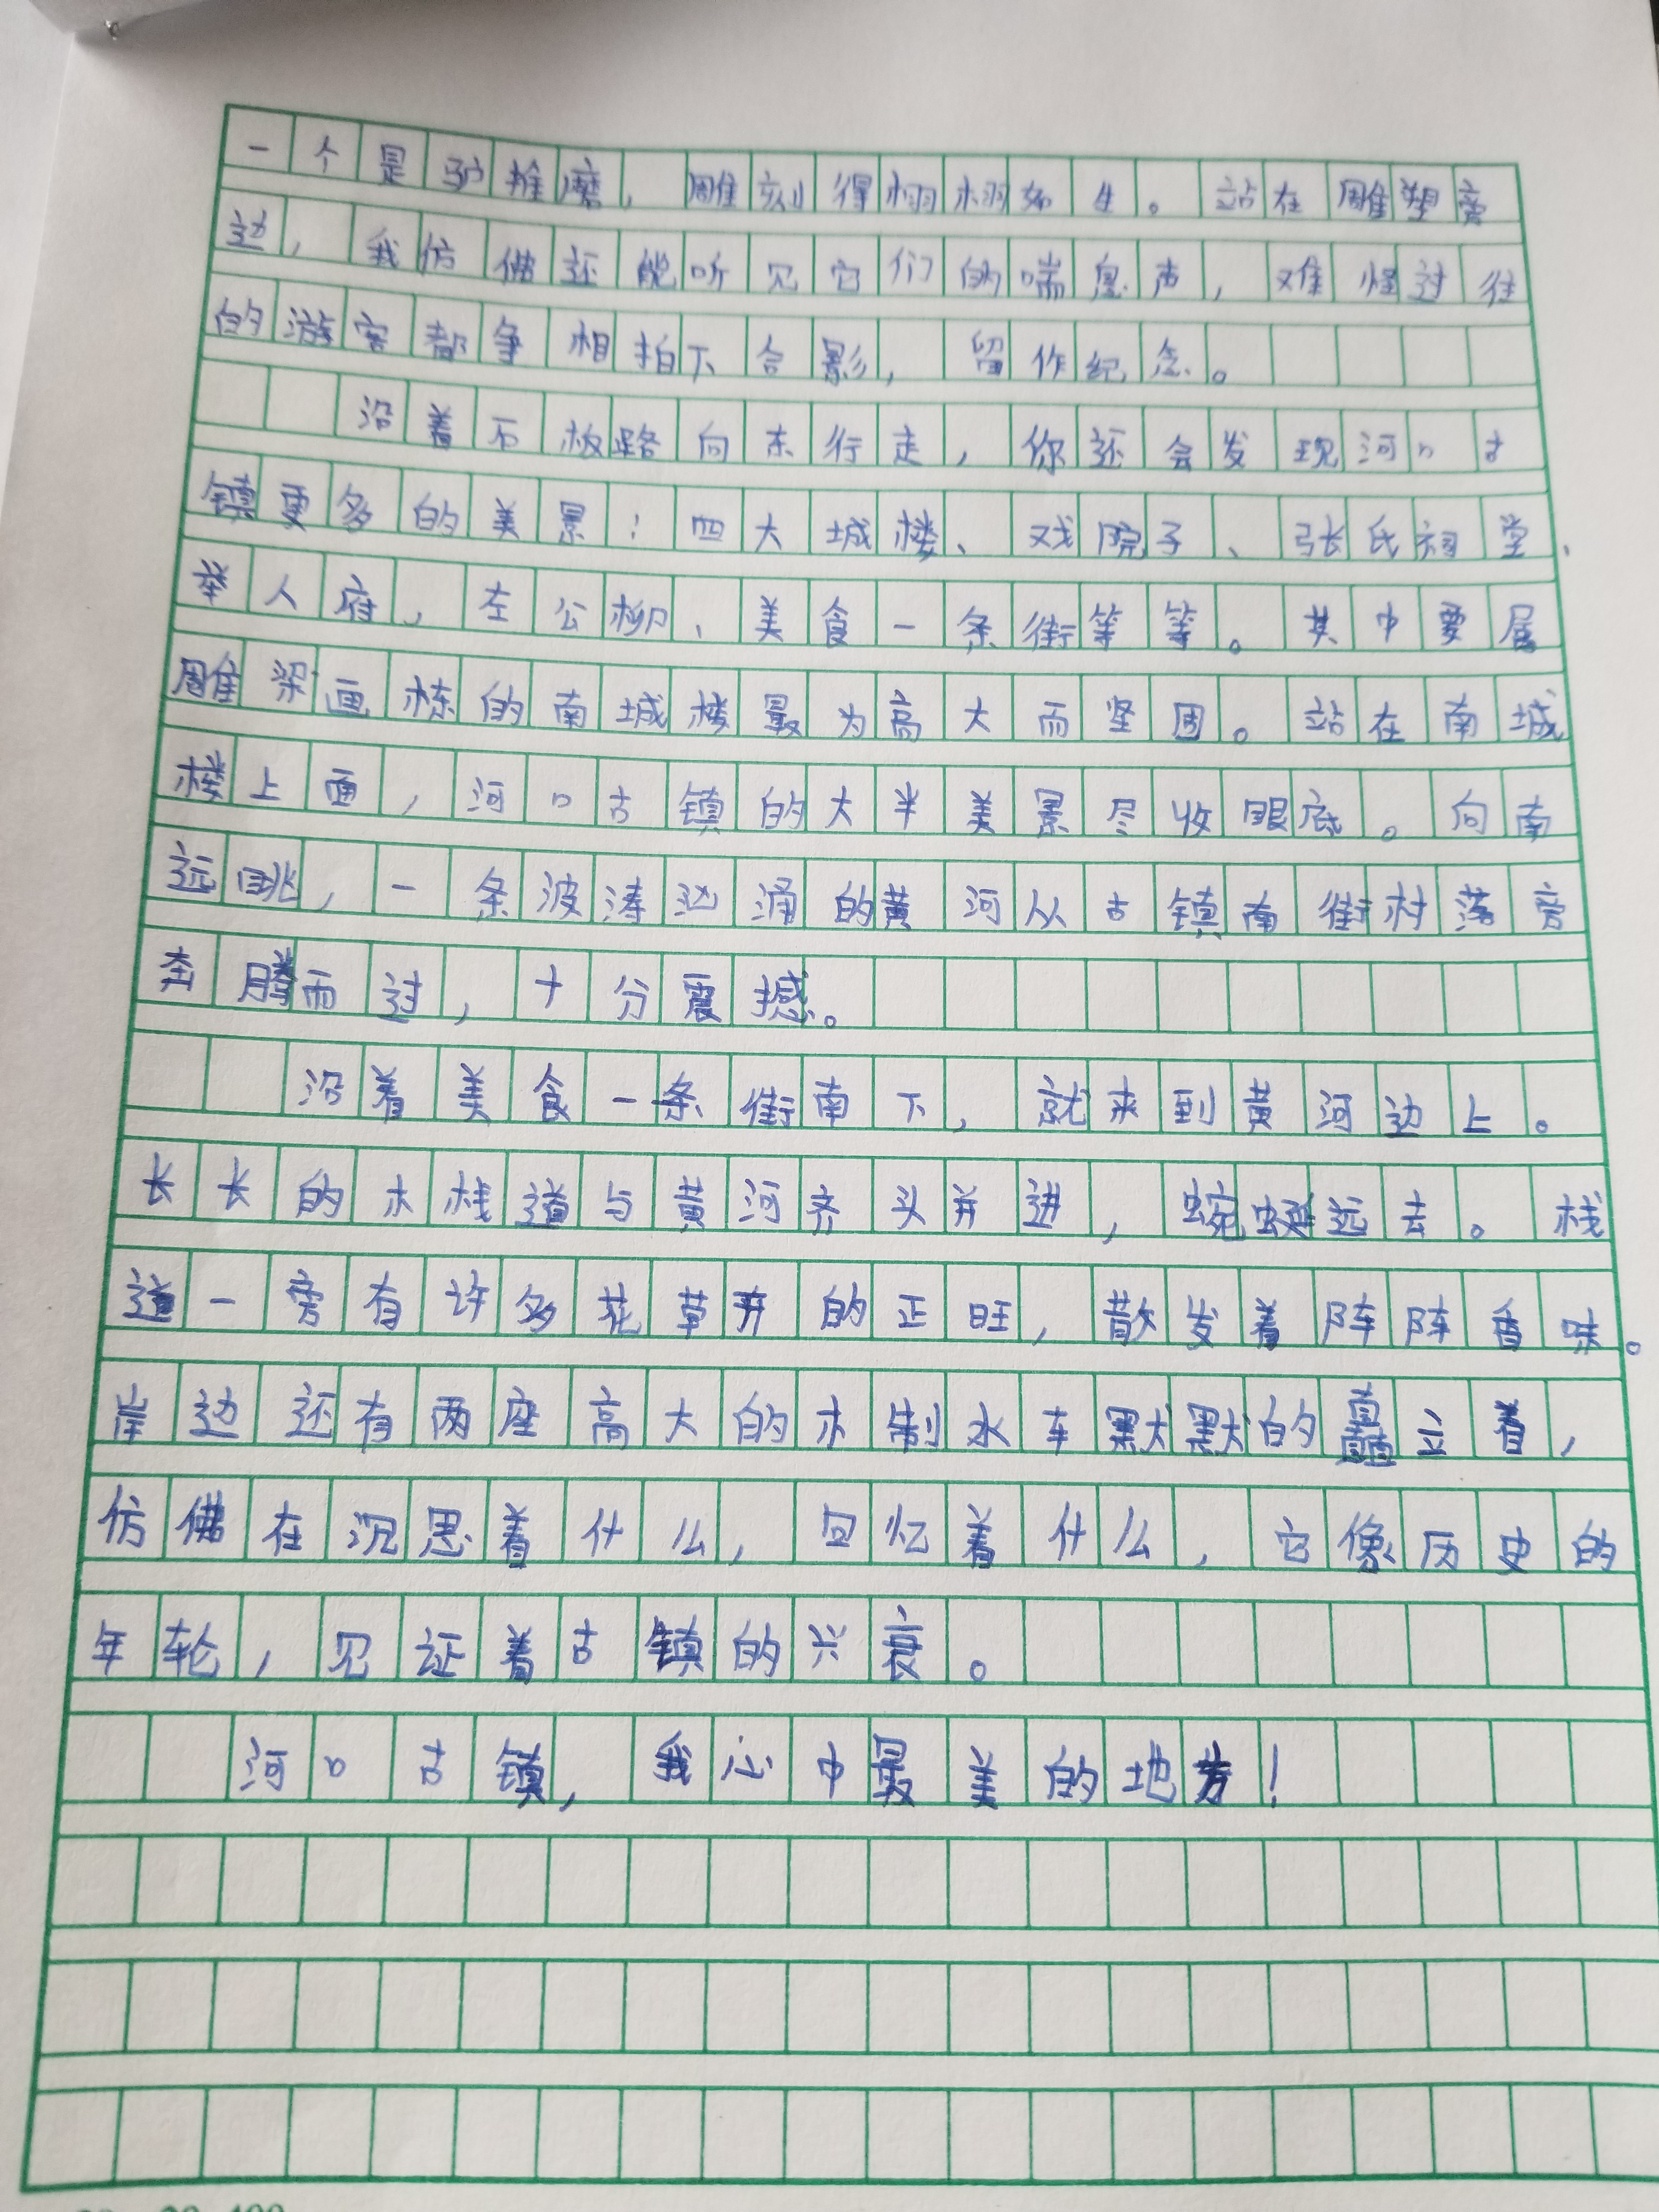 一个是驴推磨，雕刻得栩栩如生。站在雕塑旁
边，我仿佛还能听见它们的喘息声，难怪过往
的游客都争相拍下合影，留作纪念。
沿着石板路向东行走，你还会发现河口古
镇更多的美景：四大城楼、戏院子、张氏祠堂、
举人府、左公柳、美食一条街等等。其中要属
雕梁画栋的南城楼最为高大而坚固。站在南城
楼上面，河口古镇的大半美景尽收眼底。向南
远眺，一条波涛汹涌的黄河从古镇南街村落旁
奔腾而过，十分震撼。
沿着美食一条街南下，就来到黄河边上。
长长的木栈道与黄河齐头并进，蜿蜒远去。栈
道一旁有许多花草开的正旺，散发着阵阵香味。
岸边还有两座高大的木制水车默默的矗立着，
仿佛在沉思着什么，回忆着什么，它像历史的
年轮，见证着古镇的兴衰。
河口古镇，我心中最美的地方！